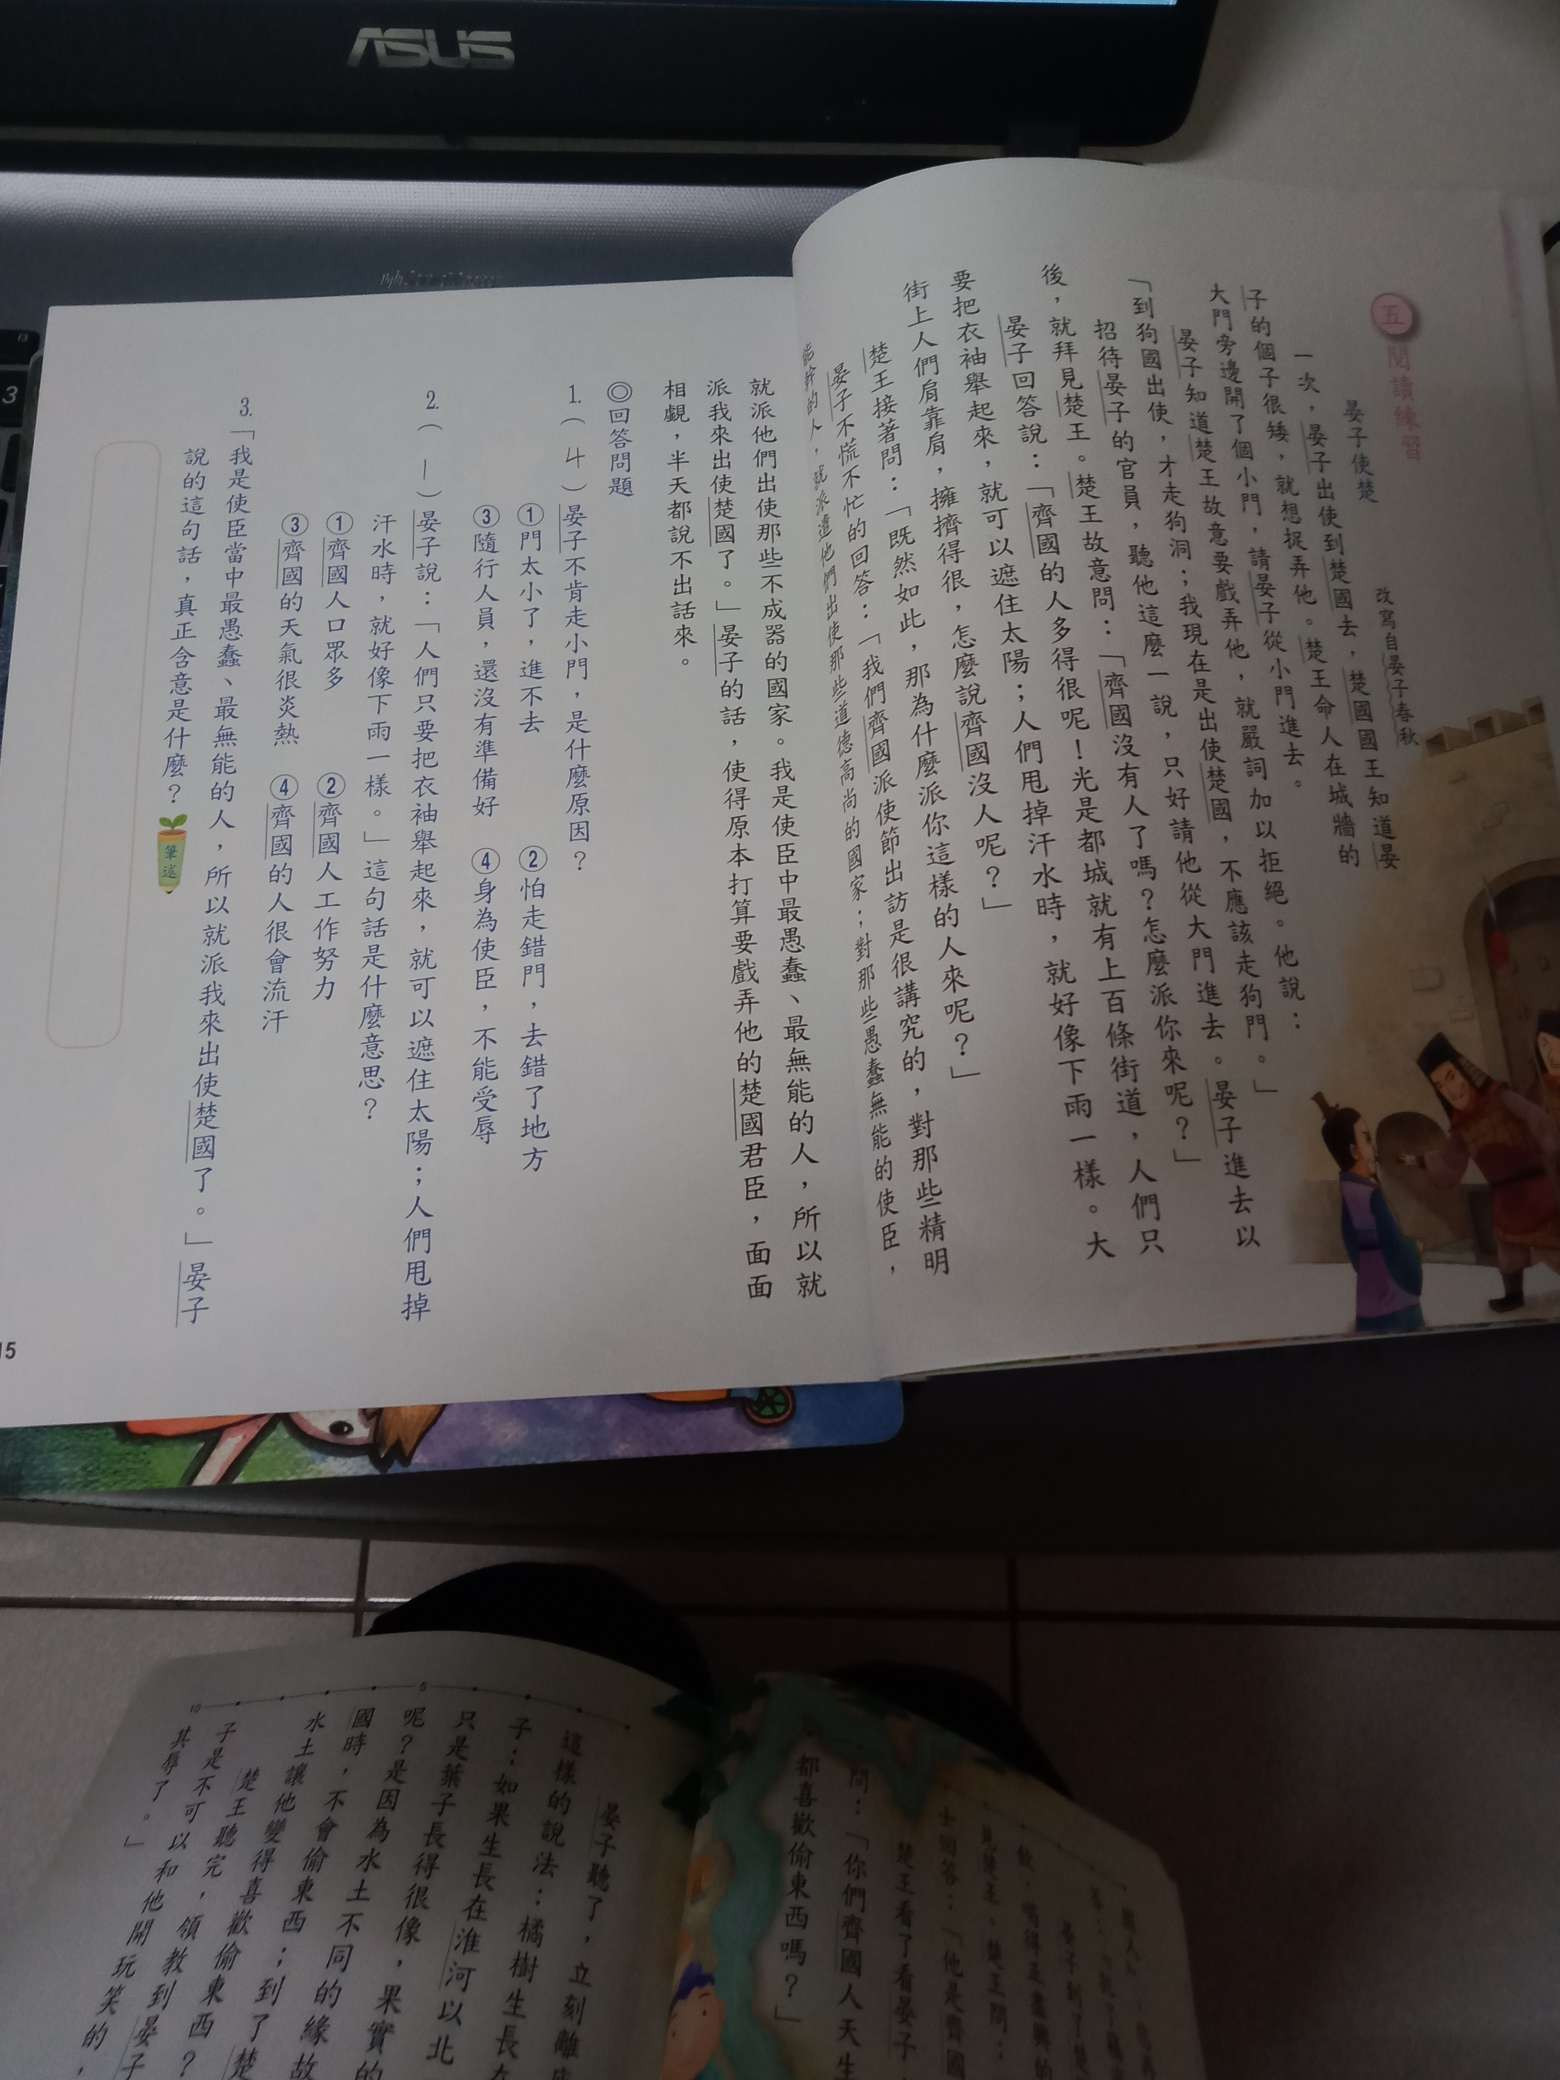 ASUS
五 閱讀練習
晏子使楚
改寫自晏子春秋
一次，晏子出使到楚國去，楚國國王知道晏
子的個子很矮，就想捉弄他。楚王命人在城牆的
大門旁邊開了個小門，請晏子從小門進去。
晏子知道楚王故意要戲弄他，就嚴詞加以拒絕。他說：
「到狗國出使，才走狗洞；我現在是出使楚國，不應該走狗門。」
招待晏子的官員，聽他這麼一說，只好請他從大門進去。晏子進去以
後，就拜見楚王。楚王故意問：「齊國沒有人了嗎？怎麼派你來呢？」
晏子回答說：「齊國的人多得很呢！光是都城就有上百條街道，人們只
要把衣袖舉起來，就可以遮住太陽；人們甩掉汗水時，就好像下雨一樣。大
街上人們肩靠肩，擁擠得很，怎麼說齊國沒人呢？」
楚王接著問：「既然如此，那為什麼派你這樣的人來呢？」
晏子不慌不忙的回答：「我們齊國派使節出訪是很講究的，對那些精明
能幹的人，就派遣他們出使那些道德高尚的國家；對那些愚蠢無能的使臣，
就派他們出使那些不成器的國家。我是使臣中最愚蠢、最無能的人，所以就
派我來出使楚國了。」晏子的話，使得原本打算要戲弄他的楚國君臣，面面
相覷，半天都說不出話來。
◎回答問題
1.（4）晏子不肯走小門，是什麼原因？
①門太小了，進不去 ②怕走錯門，去錯了地方
③隨行人員，還沒有準備好 ④身為使臣，不能受辱
2.（1）晏子說：「人們只要把衣袖舉起來，就可以遮住太陽；人們甩掉
汗水時，就好像下雨一樣。」這句話是什麼意思？
①齊國人口眾多 ②齊國人工作努力
③齊國的天氣很炎熱 ④齊國的人很會流汗
3.「我是使臣當中最愚蠢、最無能的人，所以就派我來出使楚國了。」晏子
說的這句話，真正含意是什麼？
筆述
15
3
士回答：「他是齊國
楚王看了看晏子
問：「你們齊國人天生
都喜歡偷東西嗎？」
晏子聽了，立刻離
這樣的說法：橘樹生長在
子；如果生長在淮河以北
只是葉子長得很像，果實的
呢？是因為水土不同的緣故
國時，不會偷東西；到了楚
水土讓他變得喜歡偷東西？
楚王聽完，領教到晏子
子是不可以和他開玩笑的，
其辱了。」
5
10